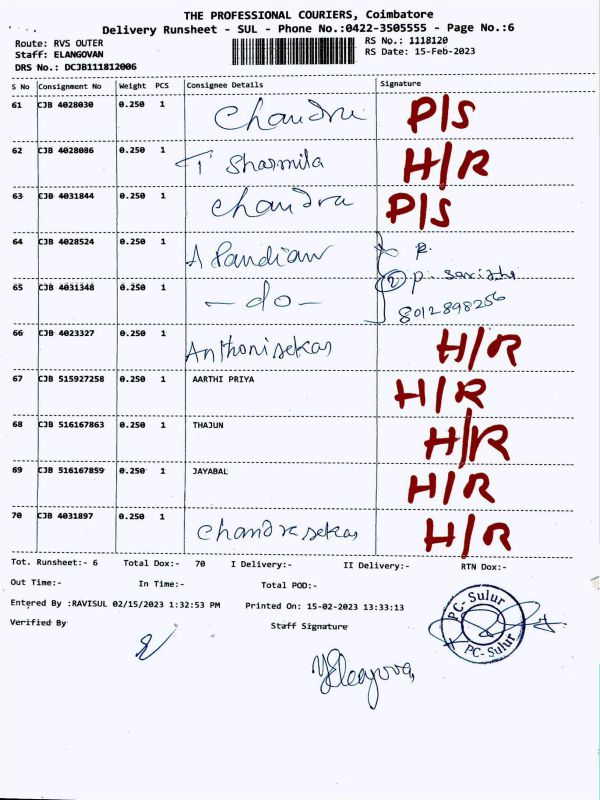 THE PROFESSIONAL COURIERS, Coimbatore
Delivery Runsheet - SUL - Phone No.:0422-3505555 - Page No.:6
Route: RVS OUTER RS No.: 1118120
Staff: ELANGOVAN RS Date: 15-Feb-2023
DRS No.: DCJB111812006
S No Consignment No Weight PCS Consignee Details Signature
61 CJB 4028030 0.250 1 Chandru P/S
62 CJB 4028086 0.250 1 T Sharmila H/R
63 CJB 4031844 0.250 1 Chandra P/S
64 CJB 4028524 0.250 1 A Pandian
P. Savitha
65 CJB 4031348 0.250 1 - do - 8012898256
66 CJB 4023327 0.250 1 Anthonisekar H/R
67 CJB 515927258 0.250 1 AARTHI PRIYA H/R
68 CJB 516167863 0.250 1 THAJUN H/R
69 CJB 516167859 0.250 1 JAYABAL H/R
70 CJB 4031897 0.250 1 Chandrasekar H/R
Tot. Runsheet:- 6 Total Dox:- 70 I Delivery:- II Delivery:- RTN Dox:-
Out Time:- In Time:- Total POD:-
Entered By :RAVISUL 02/15/2023 1:32:53 PM Printed On: 15-02-2023 13:33:13
Verified By Staff Signature
PC- Sulur
PC- Sulur